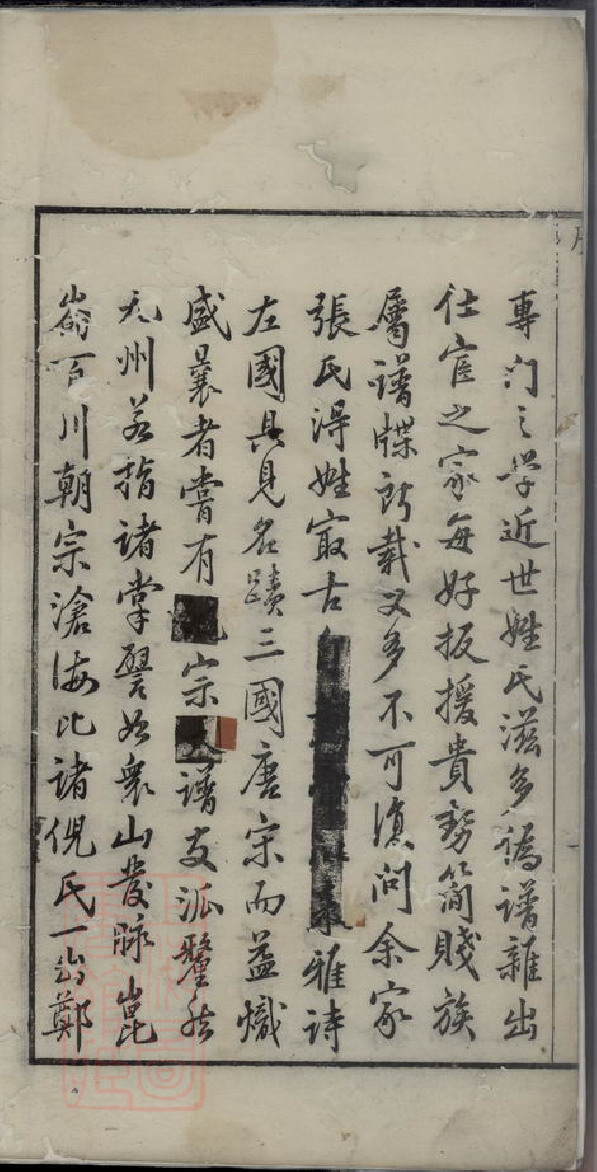 專門之學近世姓氏滋多僞譜雜出
仕宦之家每好扳援貴勢簡賤族
屬譜牒所載又多不可復問余家
張氏得姓㝡古雅詩
左國具見名蹟三國唐宋而益熾
盛曩者嘗有宗譜支派釐然
九州若指諸掌譬如衆山發脉崑
崙百川朝宗滄海比諸倪氏一翁鄭